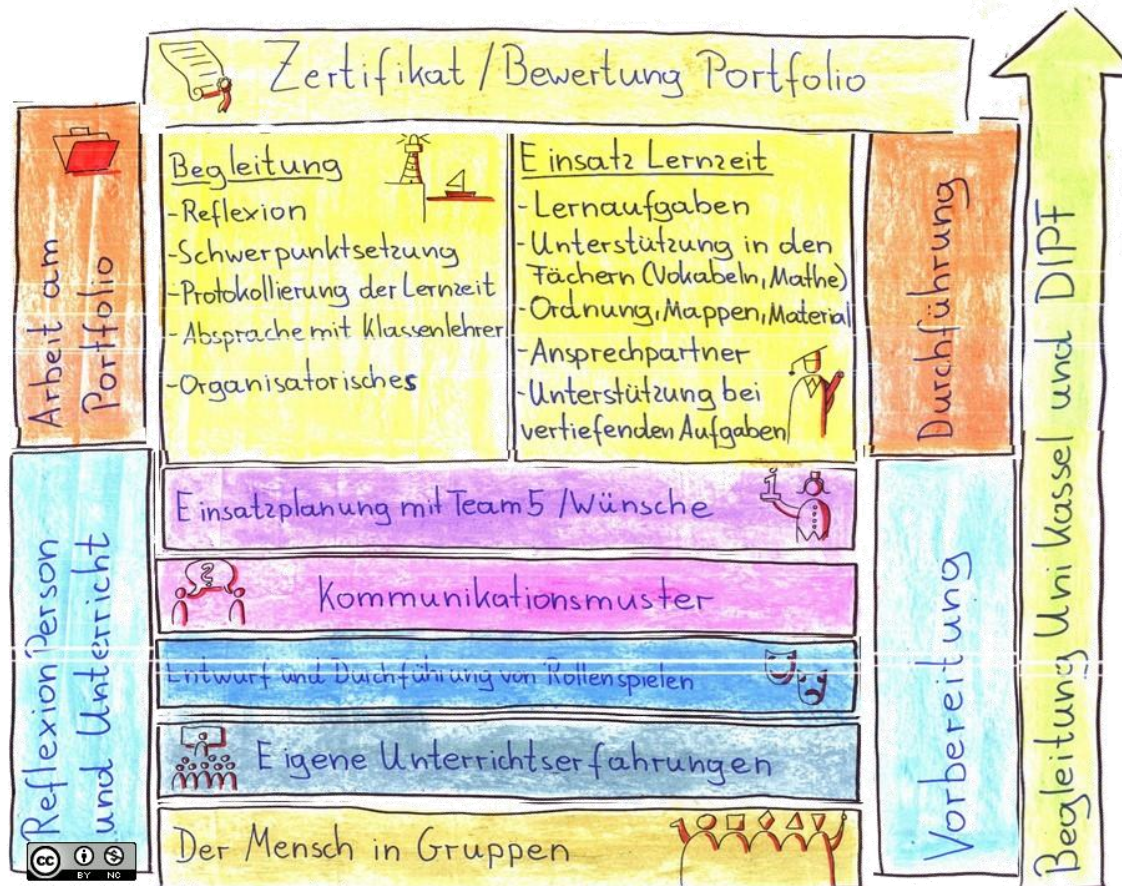 Zertifikat / Bewertung Portfolio
Arbeit am
Portfolio
Begleitung
- Reflexion
- Schwerpunktsetzung
- Protokollierung der Lernzeit
- Absprache mit Klassenlehrer
- Organisatorisches
Einsatz Lernzeit
- Lernaufgaben
- Unterstützung in den
Fächern (Vokabeln, Mathe)
- Ordnung, Mappen, Material
- Ansprechpartner
- Unterstützung bei
vertiefenden Aufgaben
Durchführung
Reflexion Person
und Unterricht
Einsatzplanung mit Team 5 / Wünsche
i
?
Kommunikationsmuster
Entwurf und Durchführung von Rollenspielen
Eigene Unterrichtserfahrungen
Der Mensch in Gruppen
Vorbereitung
Begleitung Uni Kassel und DIPF
cc
BY NC